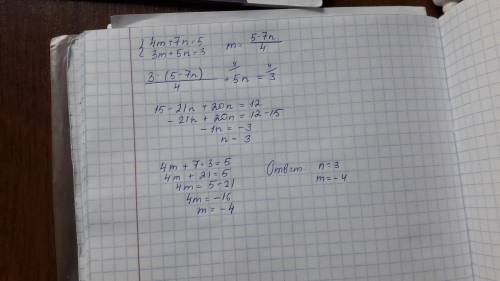 { 4m+7n=5
{ 3m+5n=3
m = (5-7n)/4
3·(5-7n)/4 + 5n⁴⁄ = 3⁴⁄
15-21n+20n=12
-21n+20n=12-15
-1n=-3
n=3
4m+7·3=5
4m+21=5
4m=5-21
4m=-16
m=-4
Ответ: n=3
m=-4